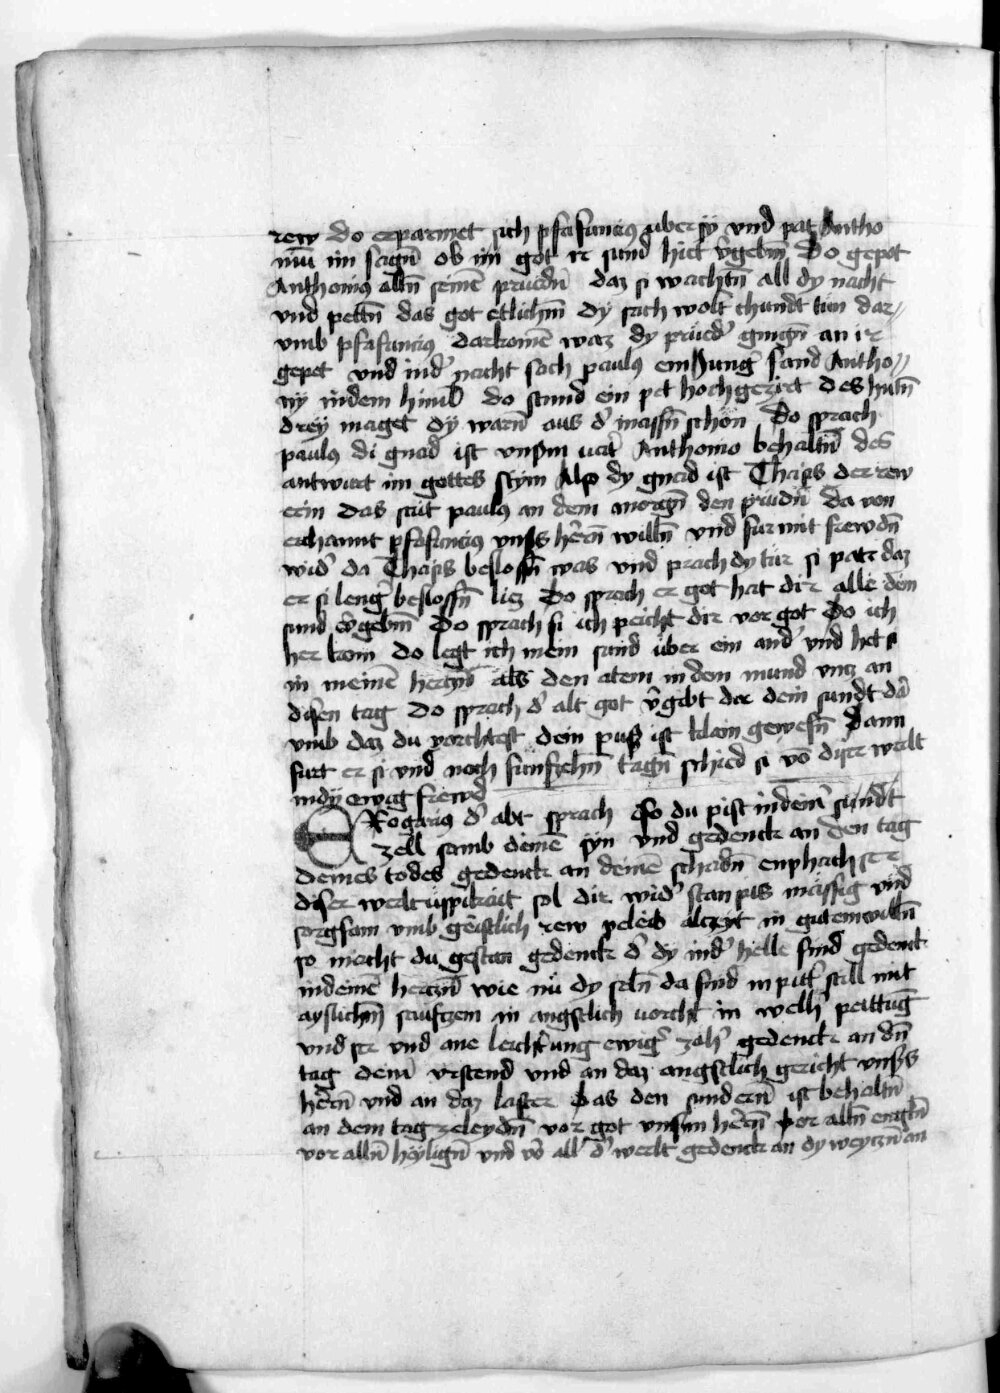 rew do erparmet sich pfafuncius uber sy vnd pat Antho
niū im sagn̄ ob im got ir sund hiet v̄gebm̄ Do gepot
Anthonius alln̄ seinē pruedn̄ daz si wachtn̄ all dy nacht
vnd pettn̄ das got etlichm̄ dy sach wolt chundt tun dar
vmb pfafuncius darkomē waz dy prued̓ gingn̄ an ir
gepet vnd ind̓ nacht sach paulus ein Jung̓ sand Antho
ny in dem himel do stund ein pet hoch gezirt des hutn̄
drey maget dy warn̄ aus d̓ massn̄ schön Do sprach
paulus di gnad ist vnsm̄ uat̓ Anthonio behaltn̄ des
antwurt im gottes stym Also dy gnad ist Thaÿs der rew
erin das seit paulus an dem morgn̄ den prudn̄ da von
erchannt pfafuncius vnss hern̄ willn̄ vnd fur mit frewdn̄
wid̓ da Thaÿs beslossn̄ was vnd prach dy tür si pat daz
er si leng̓ beslossn̄ liez Do sprach er got hat dir alle dein
sund v̄gebm̄ Do sprach si ich peicht dir vor got do ich
her kom do legt ich mein sund über ein and̓ vnd het si
in meinē hertzn̄ als den atem in dem mund vntz an
disen tag Do sprach d̓ alt got v̄gibt dir dein sundt da
vmb daz du vorchtest dein puss ist klain gewesn̄ Dann
furt er si vnd noch funfzehn̄ tagn̄ schied si vō diser werlt
in dy ewig frewd
Ewogrius d̓ abt sprach So du pist in dein̓ sundt
zell samb deinē syn vnd gedenck an den tag
deines todes gedenck an deinē schadn̄ enphach
diser werlt üppikait sol dir wid̓ stan pis mässig vnd
sorgsam vmb geistlich rew peleib alczyt in gutem willn̄
so macht du gestan gedenck d̓ dy ind̓ helle sind gedenck
in deinē hertzn̄ wie nu dy seln̄ da sind in pitt̓ still mit
ayslichn̄ seuftzem in angstlich uorcht in welh̓ peittūg
vnd ser vnd ane leichtrung ewig̓ zäh̓ gedenck an dn̄
tag dein̓ vrstend vnd an daz angstlich gericht vnss
hern̄ vnd an daz laster das den sundern̄ ist behaltn̄
an dem tag ze leydn̄ vor got vnsm̄ hern̄ vor alln̄ engln̄
vor alln̄ heylign̄ vnd vō all̓ d̓ werlt gedenck an dy weytzn̄ an